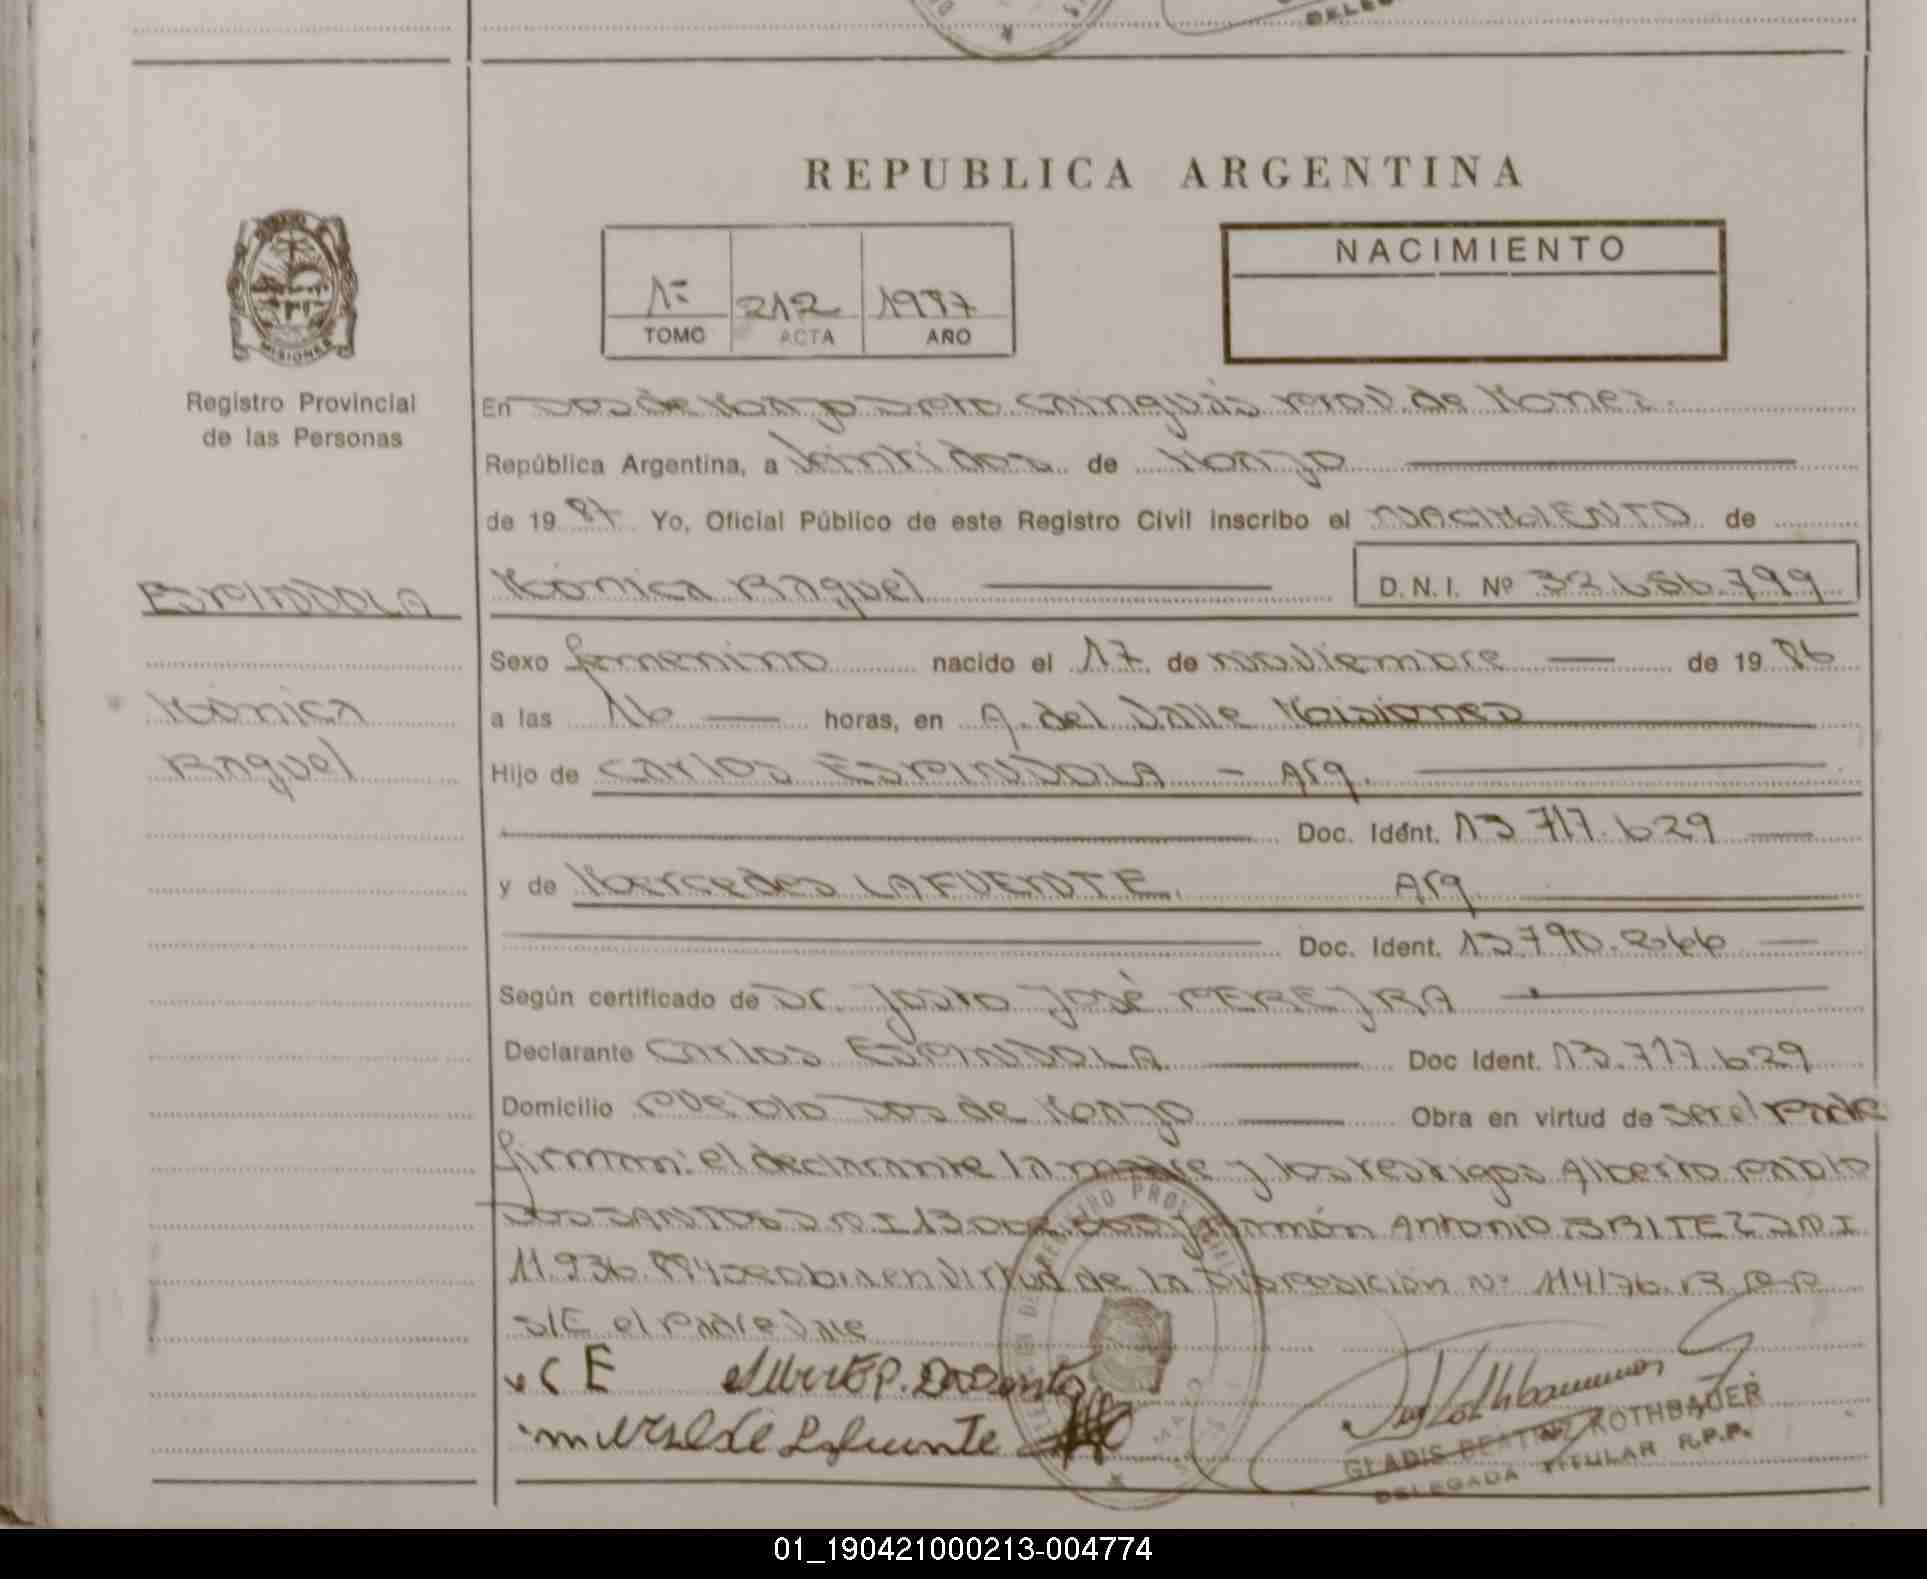 DELEG
REPUBLICA ARGENTINA
MISIONES
Registro Provincial
de las Personas
1º 212 1987
TOMO ACTA AÑO
NACIMIENTO
En Dos de Mayo Dpto Cainguás Prov. de Mones.
República Argentina, a Veintidos de Marzo
de 19 87 Yo, Oficial Público de este Registro Civil inscribo el NACIMIENTO de
ESPINDOLA
Mónica Raquel D.N.I. Nº 32.656.799
Sexo femenino nacido el 17 de noviembre de 19 86
Mónica
Raquel
a las 16 horas, en A. del Valle Misiones
Hijo de Carlos ESPINDOLA - Arg.
Doc. Idént. 13.717.629
y de Mercedes LAFUENTE. Arg.
Doc. Ident. 13.790.266
Según certificado de Dr. Justo José PEREYRA
Declarante Carlos ESPINDOLA Doc Ident. 13.717.629
Domicilio Pueblo Dos de Mayo Obra en virtud de ser el Padre
firman: el declarante la madre y los testigos Alberto Pablo
DOS SANTOS D.N.I 13.004. Ramón Antonio BRITEZ D.N.I
11.936.894 se obra en virtud de la Disposición Nº 114/76. R.P.P
S/E el Padre Vale
C E Alberto P. Dos Santos
mercede Lafuente
GLADIS BEATRIZ ROTHBAUER
DELEGADA TITULAR R.P.P.
01_190421000213-004774